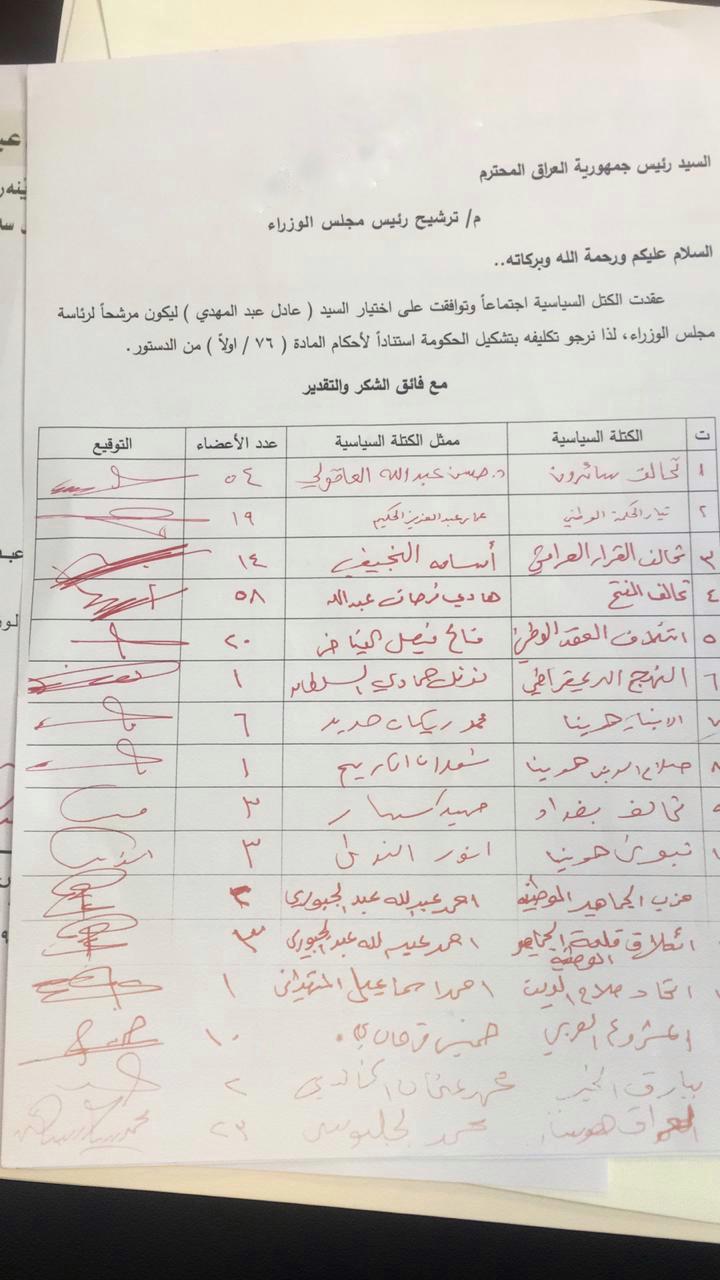 السيد رئيس جمهورية العراق المحترم
م/ ترشيح رئيس مجلس الوزراء
السلام عليكم ورحمة الله وبركاته..
عقدت الكتل السياسية اجتماعاً وتوافقت على اختيار السيد ( عادل عبد المهدي ) ليكون مرشحاً لرئاسة
مجلس الوزراء، لذا نرجو تكليفه بتشكيل الحكومة استناداً لأحكام المادة ( ٧٦ / اولاً ) من الدستور.
مع فائق الشكر والتقدير
ت الكتلة السياسية ممثل الكتلة السياسية عدد الأعضاء التوقيع
١ تحالف سائرون د. حسن عبدالله العاقولي ٥٤
٢ تيار الحكمة الوطني عمار عبدالعزيز الحكيم ١٩
٣ تحالف القرار العراقي أسامه النجيفي ١٤
٤ تحالف الفتح هادي فرحان عبدالله ٥٨
٥ ائتلاف العقد الوطني فالح فيصل ٢٠
٦ النهج الديمقراطي حمادي ١
٧ الانبار هويتنا محمد ريكان حديد ٦
٨ صلاح الدين هويتنا شعلان ١
تحالف بغداد ٣
نينوى هويتنا انور ٣
حزب الجماهير الوطنيه احمد عبدالله عبد الجبوري ٢
قلعة الجماهير الوطنية احمد عبدالله عبد الجبوري ٣
اتحاد صلاح الدين احمد اسماعيل المشهداني ١
المشروع العربي خميس فرحان ١٠
بيارق الخير محمد عثمان الخالدي ٢
العراق هويتنا محمد الحلبوسي ٢٣